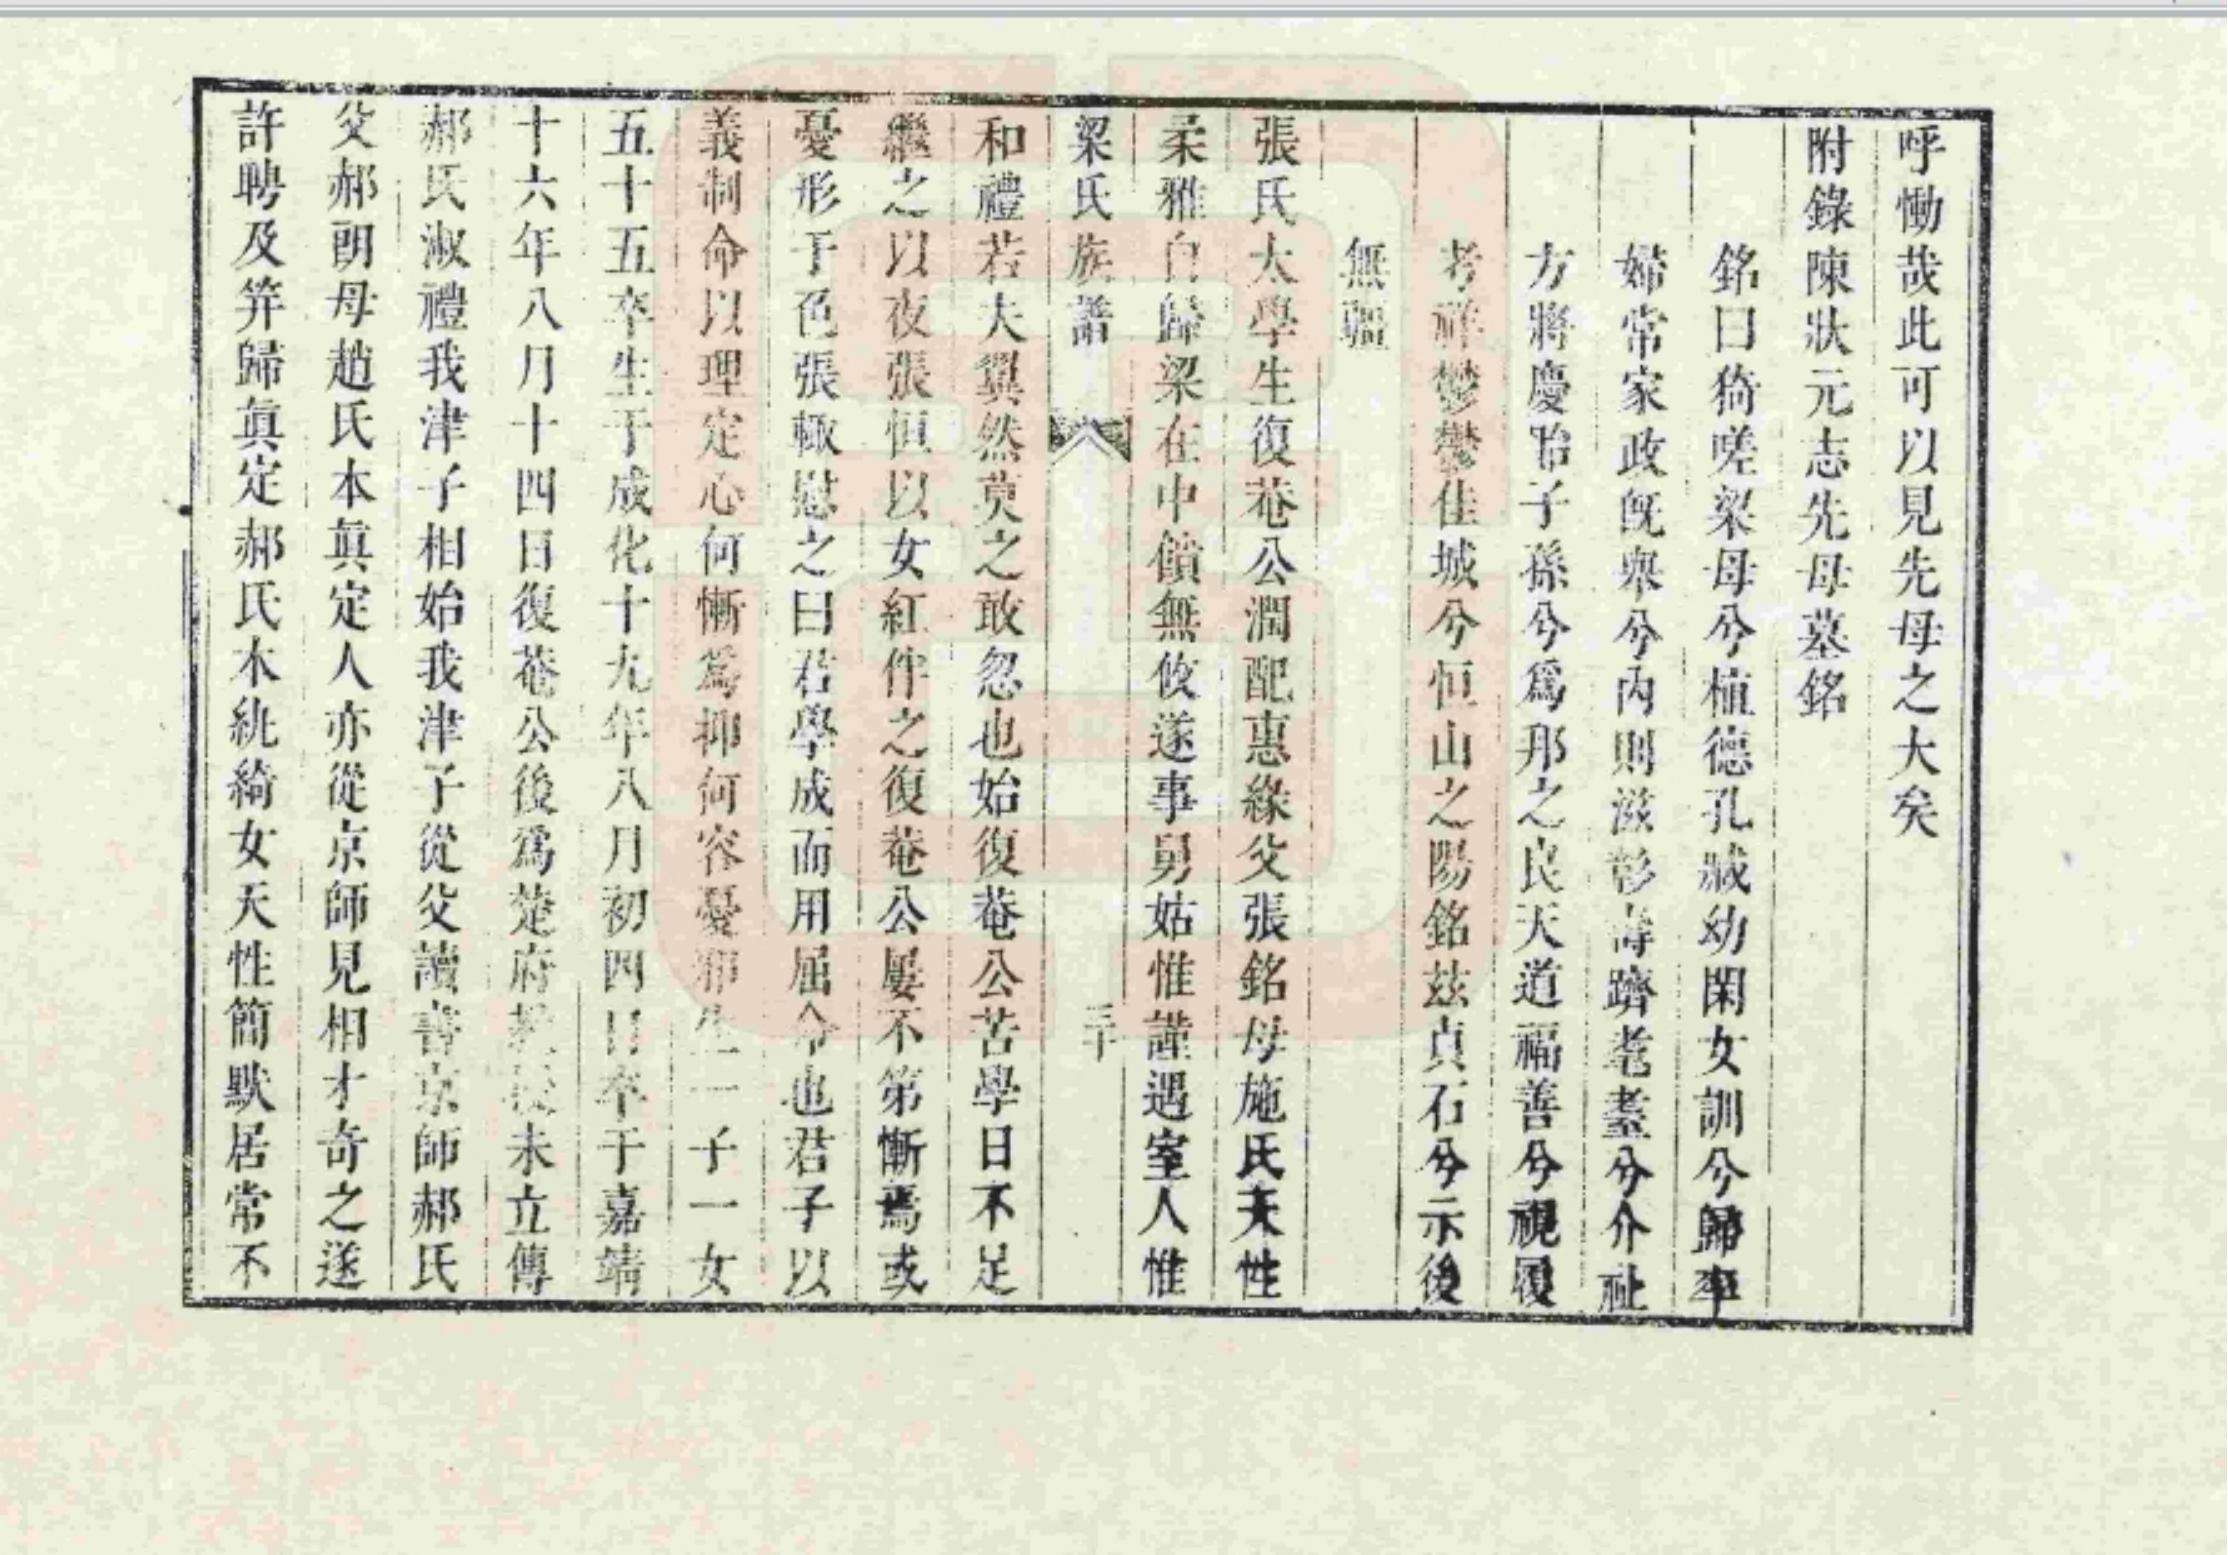 呼慟哉此可以見先母之大矣
附錄陳狀元志先母墓銘
銘曰猗嗟梁母兮植德孔臧幼閑女訓兮歸率
婦常家政旣與兮內則滋彰壽躋耄耋兮介祉
方將慶詒子孫兮爲邦之良天道福善兮視履
考祥鬱鬱佳城兮恒山之陽銘玆貞石兮示後
無疆
張氏太學生復菴公潤配惠緣父張銘母施氏天性
柔雅自歸梁在中饋無攸遂事舅姑惟謹遇室人惟
梁氏族譜
三十
和禮若夫翼然莫之敢忽也始復菴公苦學日不足
繼之以夜張恒以女紅伴之復菴公屢不第慚焉或
憂形于色張輙慰之曰君學成而用屈命也君子以
義制命以理定心何慚爲抑何容憂邪生二子一女
五十五卒生于成化十九年八月初四日卒于嘉靖
十六年八月十四日復菴公後爲楚府教授未立傳
郝氏淑禮我津子相始我津子從父讀書京師郝氏
父郝朗母趙氏本眞定人亦從京師見相才奇之遂
許聘及笄歸眞定郝氏本紈綺女天性簡默居常不